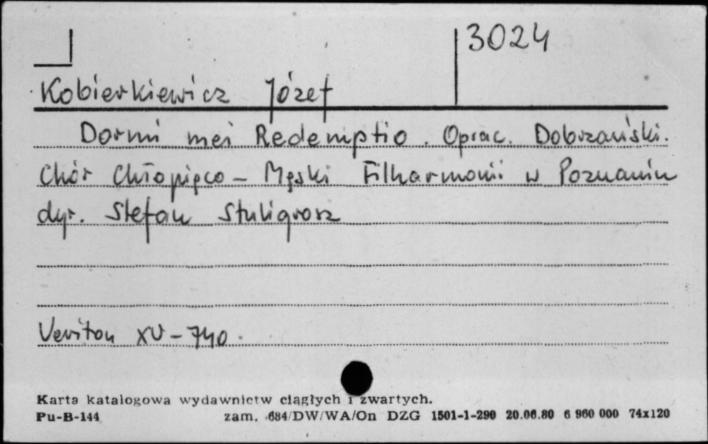 3024
Kobierkiewicz Józef
Dormi mei Redemptio. Oprac. Dobrzański.
Chór Chłopięco - Męski Filharmonii w Poznaniu
dyr. Stefan Stuligrosz
Veriton XV-740.
Karta katalogowa wydawnictw ciągłych i zwartych.
Pu-B-144 zam. 684/DW/WA/On DZG 1501-1-290 20.06.80 6 960 000 74x120